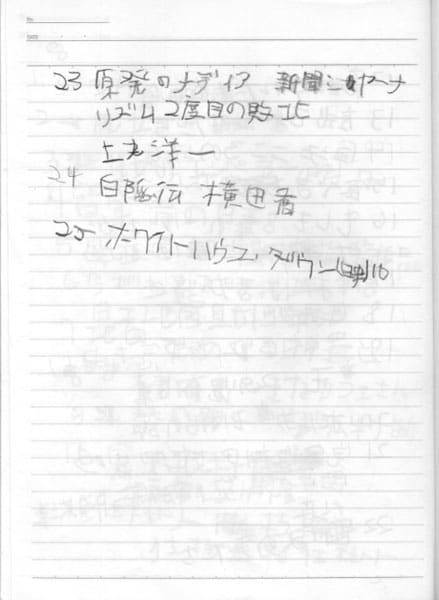 23 原発のメディア 新聞ジャーナ
リズム2度目の敗北
上丸洋一
24 白隠伝 横田
25 ホワイトハウス・ダウン(映)16